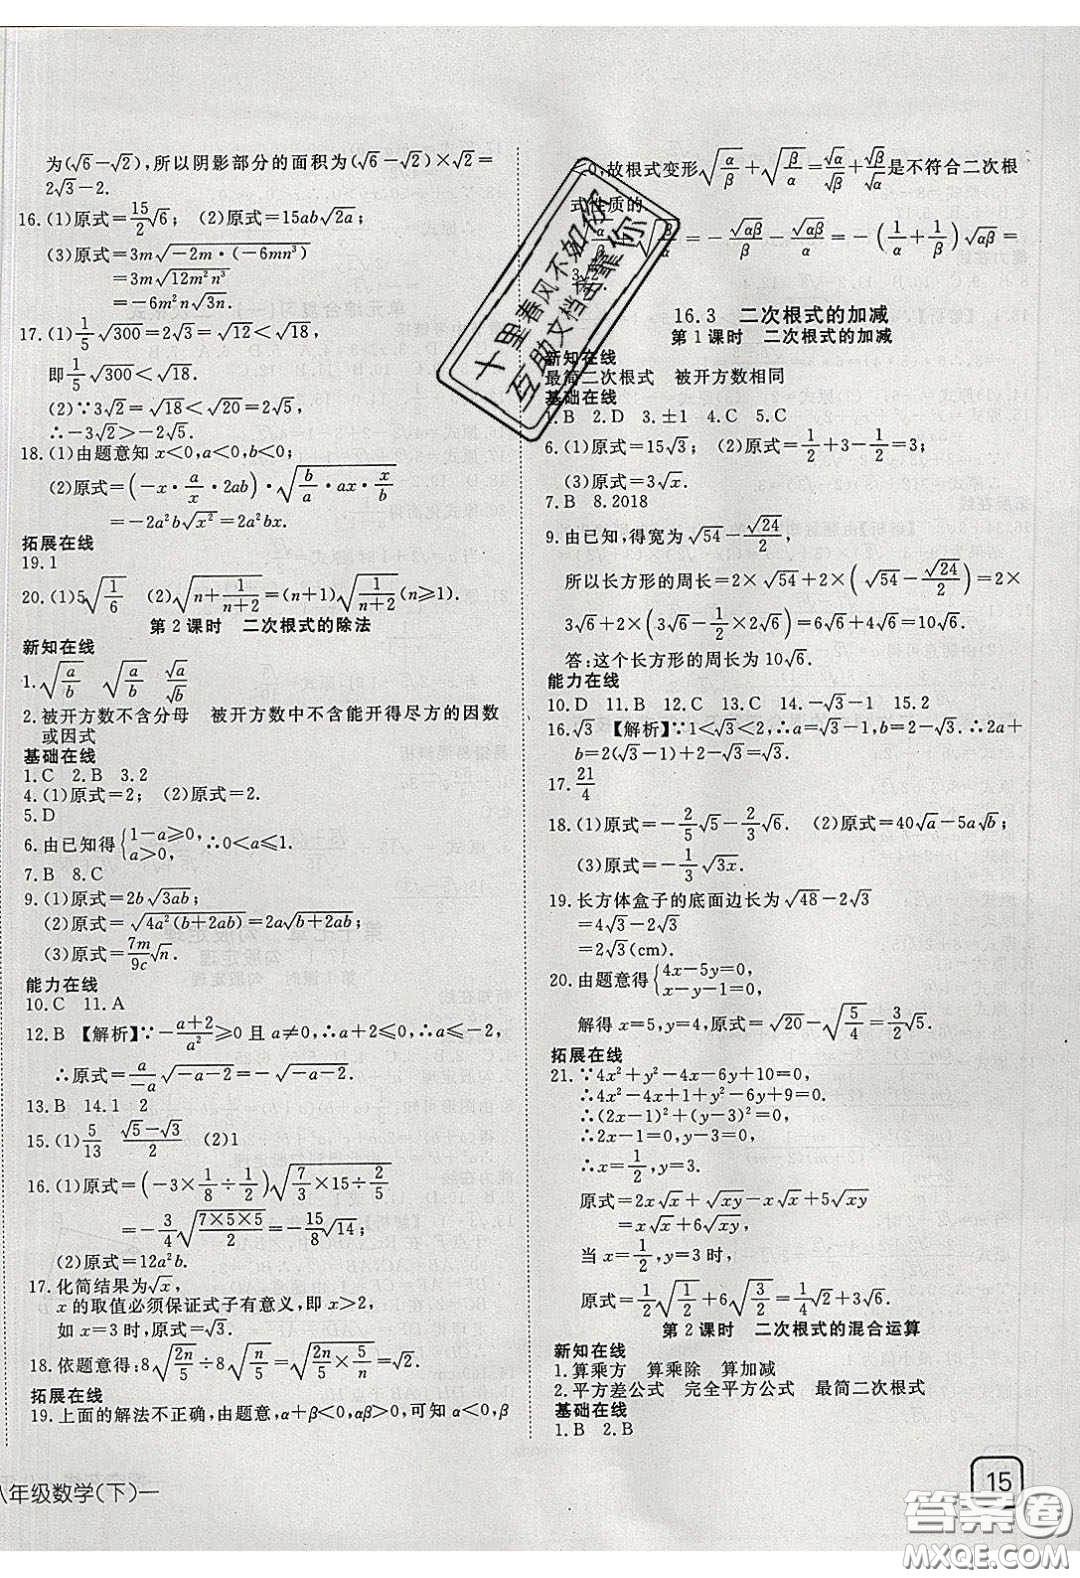 为(√6−√2),所以阴影部分的面积为(√6−√2)×√2=
2√3−2.
16.(1)原式=15/2√6; (2)原式=15ab√(2a);
(3)原式=3m√(−2m·(−6mn³))
=3m√(12m²n³)
=−6m²n√(3n).
17.(1)1/5√300=2√3=√12<√18,
即1/5√300<√18.
(2)∵3√2=√18<√20=2√5,
∴−3√2>−2√5.
18.(1)由题意知 x<0,a<0,b<0;
(2)原式=(−x·a/x·2ab)·√(b/a·ax·x/b)
=−2a²b√(x²)=2a²bx.
拓展在线
19.1
20.(1)5√(1/6) (2)√(n+1/(n+2))=(n+1)√(1/(n+2))(n≥1).
第2课时 二次根式的除法
新知在线
1.√(a/b) √(a/b) √a/√b
2.被开方数不含分母 被开方数中不含能开得尽方的因数
或因式
基础在线
1.C 2.B 3.2
4.(1)原式=2; (2)原式=2.
5.D
6.由已知得{1−a≥0, a>0, ∴0<a≤1.
7.B 8.C
9.(1)原式=2b√(3ab);
(2)原式=√(4a²(b+2ab))=2a√(b+2ab);
(3)原式=7m/9c√n.
能力在线
10.C 11.A
12.B 【解析】∵−(a+2)/a²≥0 且 a≠0,∴a+2≤0,∴a≤−2,
∴原式=a/−a√(−a−2)=−√(−a−2).
13.B 14.1 2
15.(1)5/13 (√5−√3)/2 (2)1
16.(1)原式=(−3×1/8÷1/2)√(7/3×15÷2/5)
=−3/4√((7×5×5)/2)=−15/8√14;
(2)原式=12a²b.
17.化简结果为√x,
x的取值必须保证式子有意义,即 x>2,
如 x=3时,原式=√3.
18.依题意得:8√(2n/5)÷8√(n/5)=√(2n/5×5/n)=√2.
拓展在线
19.上面的解法不正确,由题意,α+β<0,αβ>0,可知 α<0,β
<0,故根式变形√(α/β)+√(β/α)=√α/√β+√β/√α是不符合二次根
式性质的
=−√(αβ)/β−√(αβ)/α=−(1/α+1/β)√(αβ)=
16.3 二次根式的加减
第1课时 二次根式的加减
新知在线
最简二次根式 被开方数相同
基础在线
1.B 2.D 3.±1 4.C 5.C
6.(1)原式=15√3; (2)原式=1/2+3−1/2=3;
(3)原式=3√x.
7.B 8.2018
9.由已知,得宽为√54−√24/2,
所以长方形的周长=2×√54+2×(√54−√24/2)=2×
3√6+2×(3√6−1/2×2√6)=6√6+4√6=10√6.
答:这个长方形的周长为10√6.
能力在线
10.D 11.B 12.C 13.C 14.−√3−1 15.2
16.√3 【解析】∵1<√3<2,∴a=√3−1,b=2−√3.∴2a+
b=2(√3−1)+2−√3=√3.
17.21/4
18.(1)原式=−2/5√5−2/3√6. (2)原式=40√a−5a√b;
(3)原式=−1/3√(3x).
19.长方体盒子的底面边长为√48−2√3
=4√3−2√3
=2√3(cm).
20.由题意得{4x−5y=0, x−y−1=0,
解得 x=5,y=4,原式=√20−√(5/4)=3/2√5.
拓展在线
21.∵4x²+y²−4x−6y+10=0,
∴4x²−4x+1+y²−6y+9=0.
∴(2x−1)²+(y−3)²=0.
∴x=1/2,y=3.
原式=2x√x+√(xy)−x√x+5√(xy)
=x√x+6√(xy).
当 x=1/2,y=3时,
原式=1/2√(1/2)+6√(3/2)=1/4√2+3√6.
第2课时 二次根式的混合运算
新知在线
1.算乘方 算乘除 算加减
2.平方差公式 完全平方公式 最简二次根式
基础在线
1.B 2.B
八年级数学(下)一
15
十里春风不如你
互助文档帮靠你
答案卷
MXQE.COM